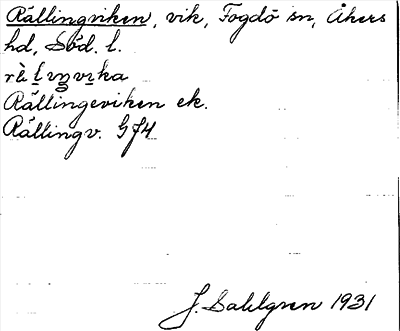 Rällingviken, vik, Fogdö sn, Åkers
hd, Söd. l.
Rällingeviken ek.
Rällingv. GJ4
J. Sahlgren 1931